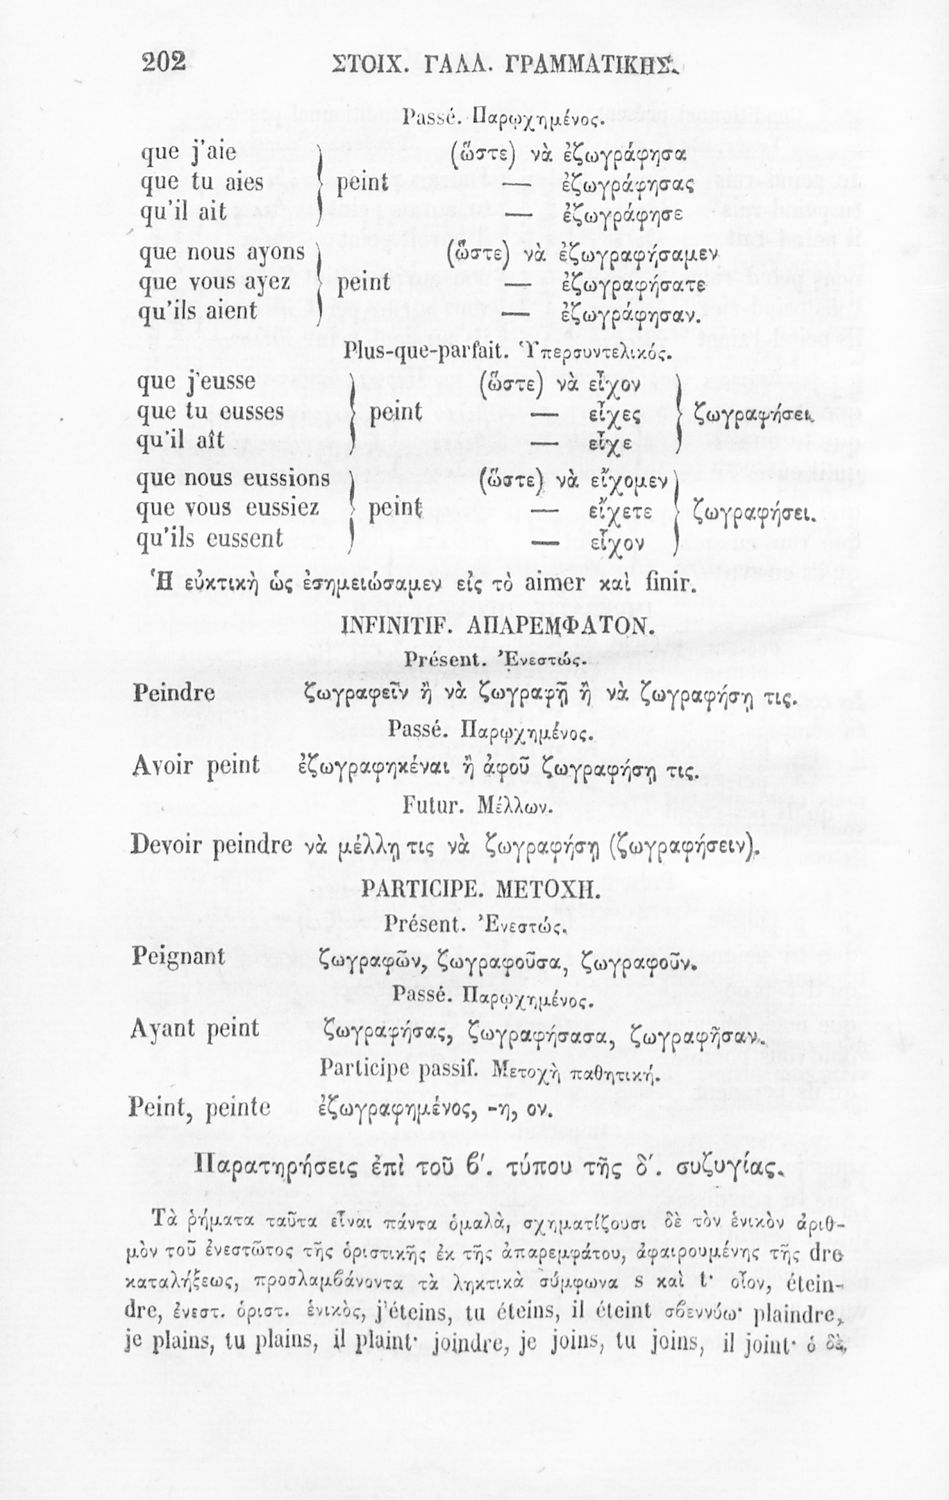 202 ΣΤΟΙΧ. ΓΑΛΛ. ΓΡΑΜΜΑΤΙΚΗΣ.
Passé. Παρῳχημένος.
que j'aie (ὥστε) νὰ ἐζωγράφησα
que tu aies } peint — ἐζωγράφησας
qu'il ait — ἐζωγράφησε
que nous ayons (ὥστε) νὰ ἐζωγραφήσαμεν
que vous ayez } peint — ἐζωγραφήσατε
qu'ils aient — ἐζωγράφησαν.
Plus-que-parfait. Ὑπερσυντελικός.
que j'eusse (ὥστε) νὰ εἶχον
que tu eusses } peint — εἶχες } ζωγραφήσει.
qu'il aît — εἶχε
que nous eussions (ὥστε) νὰ εἴχομεν
que vous eussiez } peint — εἴχετε } ζωγραφήσει.
qu'ils eussent — εἶχον
Ἡ εὐκτικὴ ὡς ἐσημειώσαμεν εἰς τὸ aimer καὶ finir.
INFINITIF. ΑΠΑΡΕΜΦΑΤΟΝ.
Présent. Ἐνεστώς.
Peindre ζωγραφεῖν ἢ νὰ ζωγραφῇ ἢ νὰ ζωγραφήσῃ τις.
Passé. Παρῳχημένος.
Avoir peint ἐζωγραφηκέναι ἢ ἀφοῦ ζωγραφήσῃ τις.
Futur. Μέλλων.
Devoir peindre νὰ μέλλῃ τις νὰ ζωγραφήσῃ (ζωγραφήσειν).
PARTICIPE. ΜΕΤΟΧΗ.
Présent. Ἐνεστώς.
Peignant ζωγραφῶν, ζωγραφοῦσα, ζωγραφοῦν.
Passé. Παρῳχημένος.
Ayant peint ζωγραφήσας, ζωγραφήσασα, ζωγραφῆσαν.
Participe passif. Μετοχὴ παθητική.
Peint, peinte ἐζωγραφημένος, -η, ον.
Παρατηρήσεις ἐπὶ τοῦ β΄. τύπου τῆς δ΄. συζυγίας.
Τὰ ῥήματα ταῦτα εἶναι πάντα ὁμαλὰ, σχηματίζουσι δὲ τὸν ἑνικὸν ἀριθ-
μὸν τοῦ ἐνεστῶτος τῆς ὁριστικῆς ἐκ τῆς ἀπαρεμφάτου, ἀφαιρουμένης τῆς dre
καταλήξεως, προσλαμβάνοντα τὰ ληκτικὰ σύμφωνα s καὶ t· οἷον, étein-
dre, ἐνεστ. ὁριστ. ἑνικὸς, j'éteins, tu éteins, il éteint σβεννύω· plaindre,
je plains, tu plains, il plaint· joindre, je joins, tu joins, il joint· ὁ δὲ